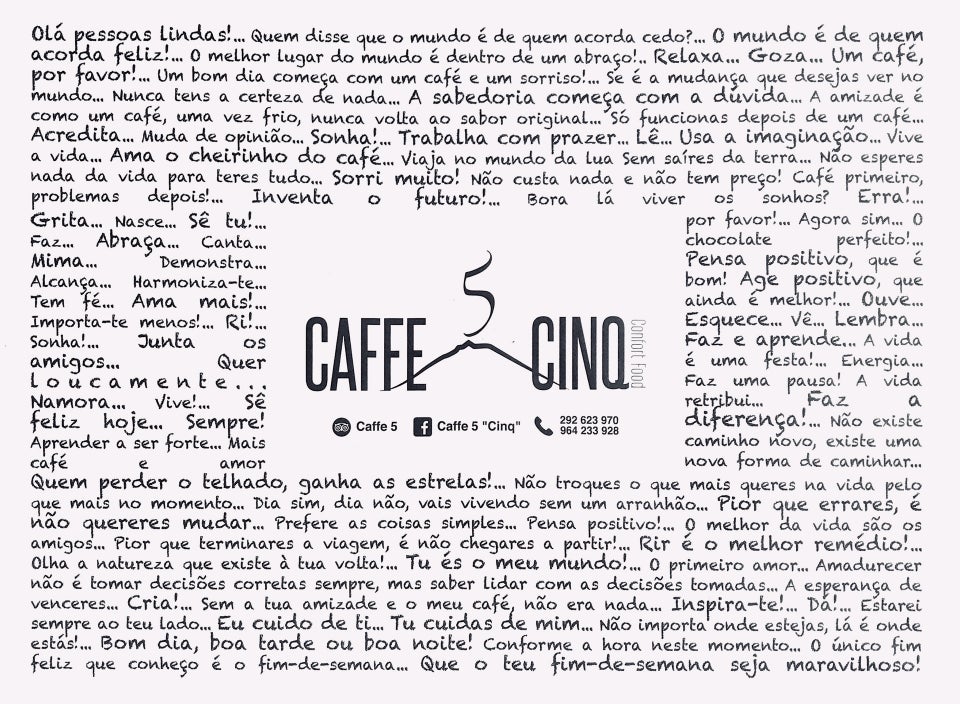 Olá pessoas lindas!... Quem disse que o mundo é de quem acorda cedo?... O mundo é de quem
acorda feliz!... O melhor lugar do mundo é dentro de um abraço!.. Relaxa... Goza... Um café,
por favor!... Um bom dia começa com um café e um sorriso!... Se é a mudança que desejas ver no
mundo... Nunca tens a certeza de nada... A sabedoria começa com a dúvida... A amizade é
como um café, uma vez frio, nunca volta ao sabor original... Só funcionas depois de um café...
Acredita... Muda de opinião... Sonha!... Trabalha com prazer... Lê... Usa a imaginação... Vive
a vida... Ama o cheirinho do café... Viaja no mundo da lua Sem saíres da terra... Não esperes
nada da vida para teres tudo... Sorri muito! Não custa nada e não tem preço! Café primeiro,
problemas depois!... Inventa o futuro!... Bora lá viver os sonhos? Erra!...
Grita... Nasce... Sê tu!...
Faz... Abraça... Canta...
Mima... Demonstra...
Alcança... Harmoniza-te...
Tem fé... Ama mais!...
Importa-te menos!... Ri!...
Sonha!... Junta os
amigos... Quer
loucamente...
Namora... Vive!... Sê
feliz hoje... Sempre!
Aprender a ser forte... Mais
café e amor
5
CAFFE CINQ
Comfort Food
Caffe 5
Caffe 5 "Cinq"
292 623 970
964 233 928
por favor!... Agora sim... O
chocolate perfeito!...
Pensa positivo, que é
bom! Age positivo, que
ainda é melhor!... Ouve...
Esquece... Vê... Lembra...
Faz e aprende... A vida
é uma festa!... Energia...
Faz uma pausa! A vida
retribui... Faz a
diferença!... Não existe
caminho novo, existe uma
nova forma de caminhar...
Quem perder o telhado, ganha as estrelas!... Não troques o que mais queres na vida pelo
que mais no momento... Dia sim, dia não, vais vivendo sem um arranhão... Pior que errares, é
não quereres mudar... Prefere as coisas simples... Pensa positivo!... O melhor da vida são os
amigos... Pior que terminares a viagem, é não chegares a partir!... Rir é o melhor remédio!...
Olha a natureza que existe à tua volta!... Tu és o meu mundo!... O primeiro amor... Amadurecer
não é tomar decisões corretas sempre, mas saber lidar com as decisões tomadas... A esperança de
venceres... Cria!... Sem a tua amizade e o meu café, não era nada... Inspira-te!... Dá!... Estarei
sempre ao teu lado... Eu cuido de ti... Tu cuidas de mim... Não importa onde estejas, lá é onde
estás!... Bom dia, boa tarde ou boa noite! Conforme a hora neste momento... O único fim
feliz que conheço é o fim-de-semana... Que o teu fim-de-semana seja maravilhoso!